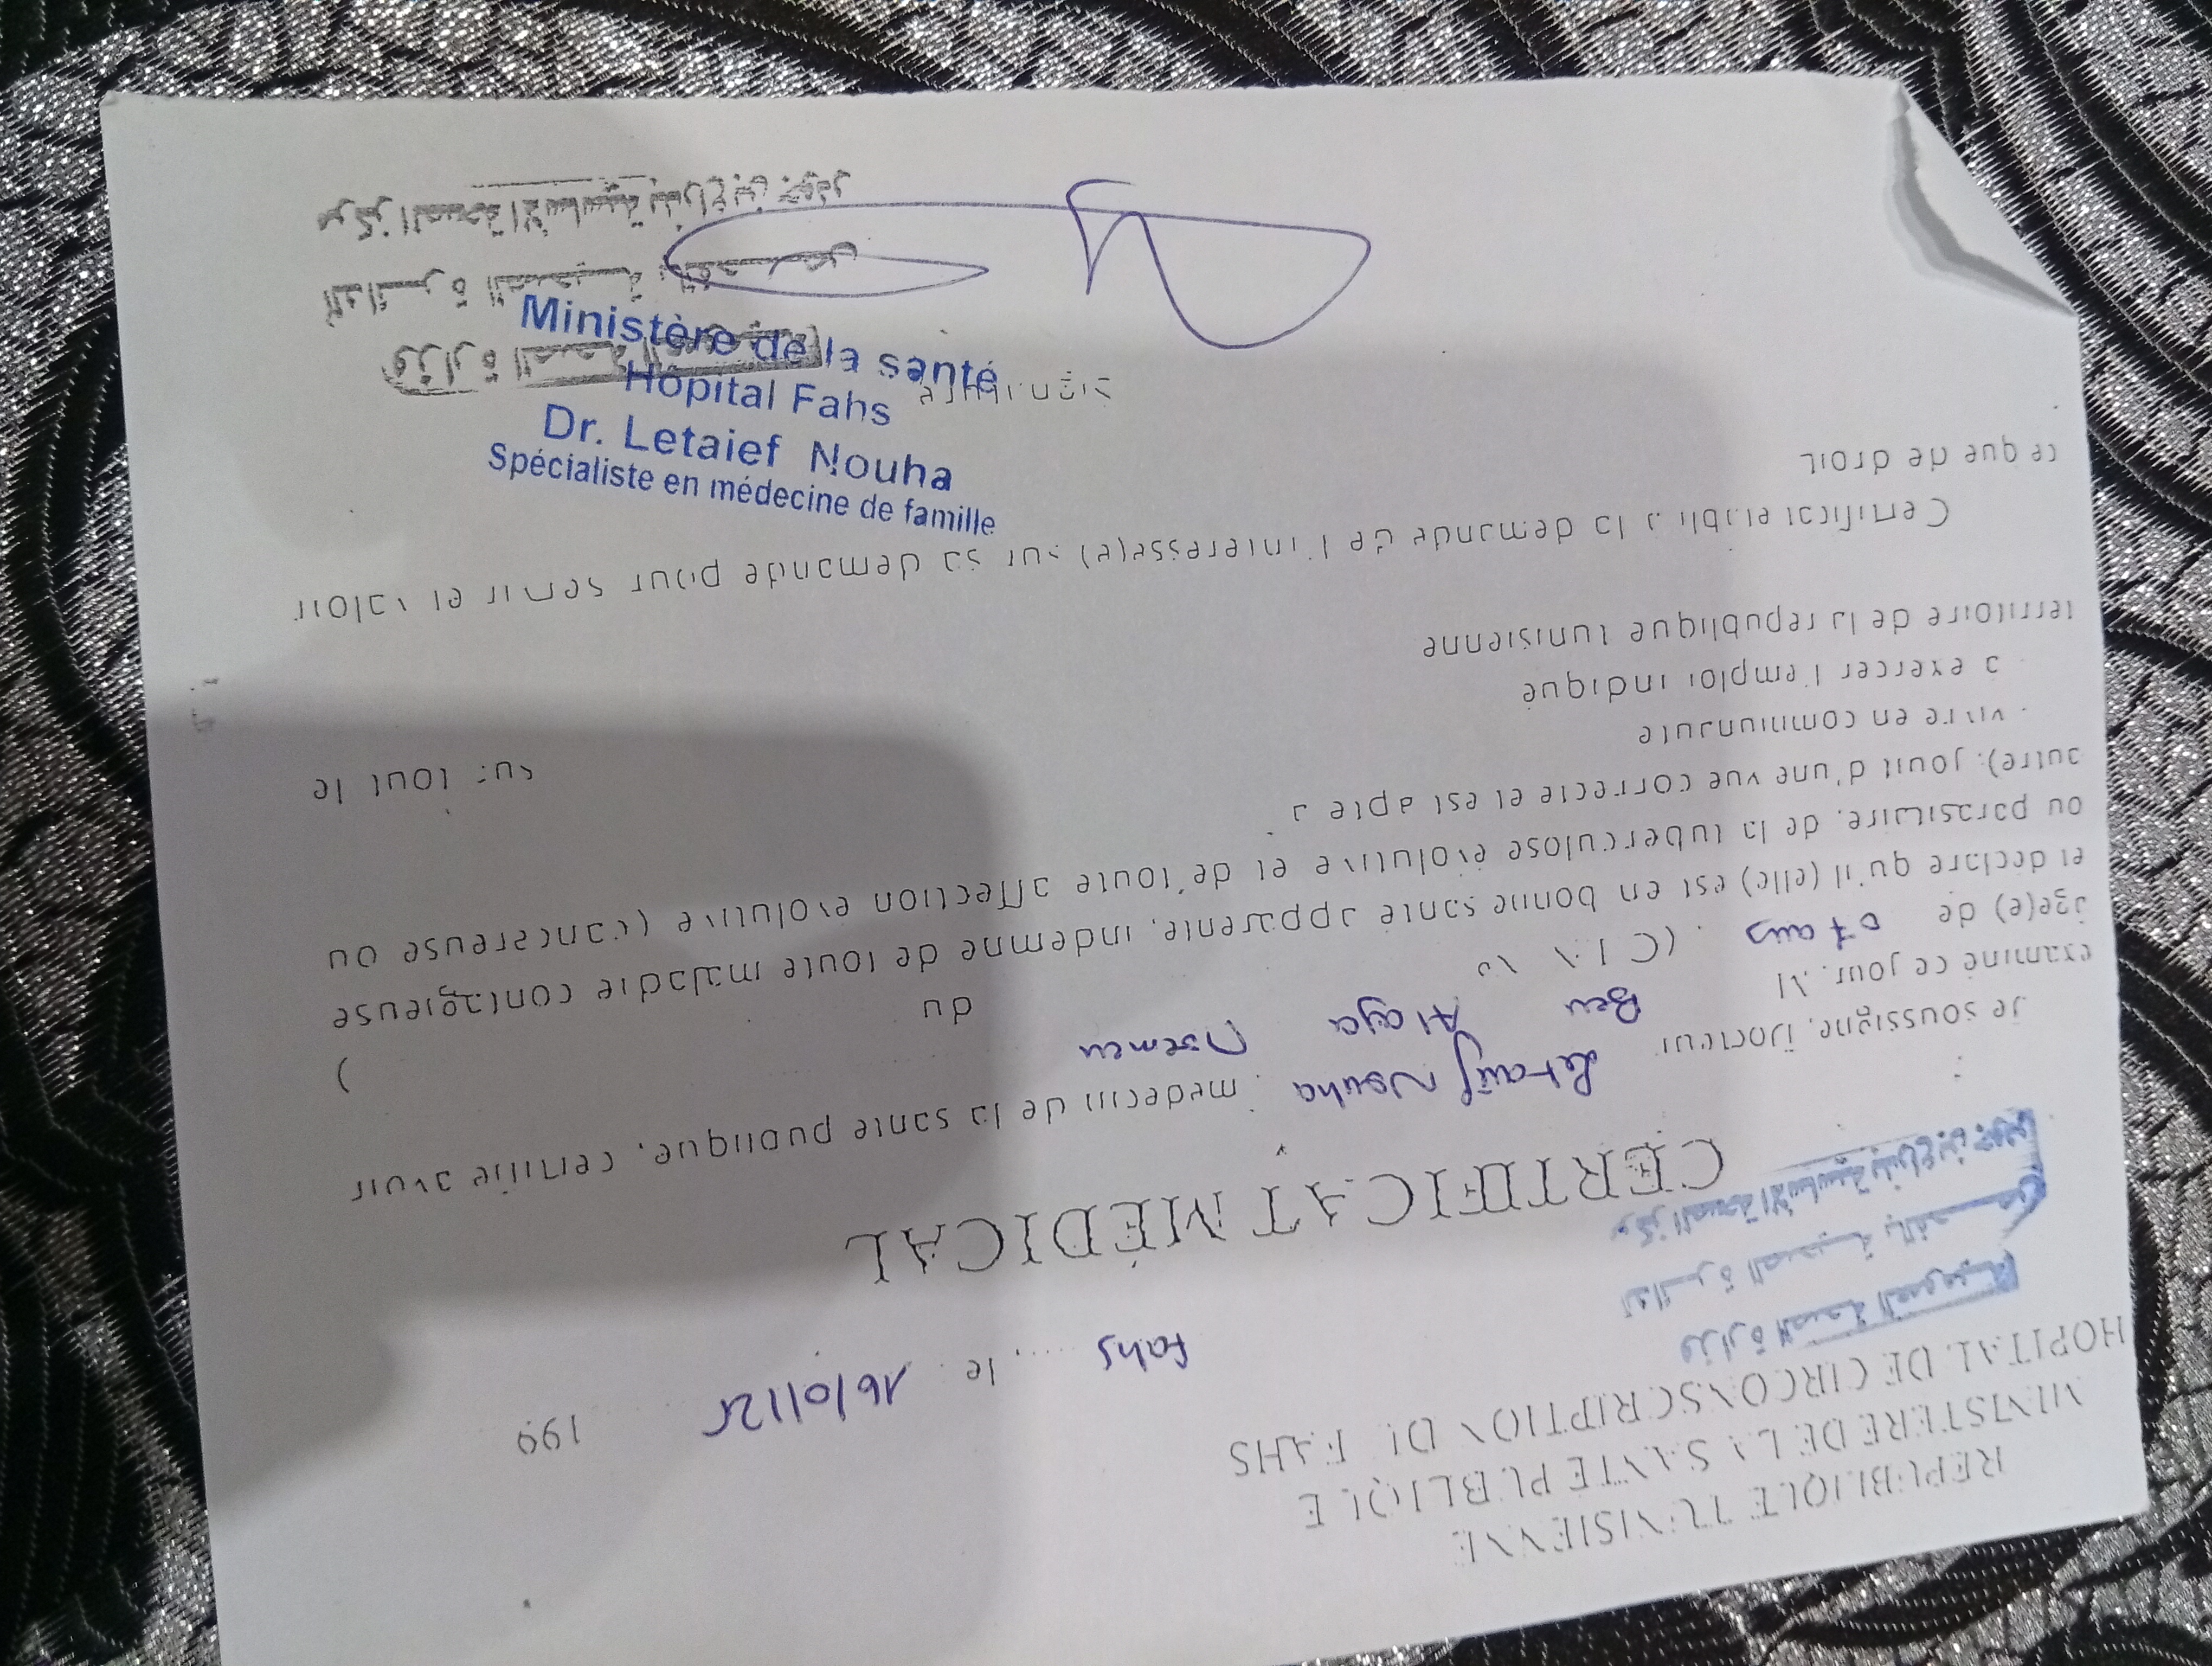 REPUBLIQUE TUNISIENNE
MINISTERE DE LA SANTE PUBLIQUE
HOPITAL DE CIRCONSCRIPTION DE FAHS
وزارة الصحة العمومية
الدائرة الصحية بالفحص
مركز الصحة الأساسية
Fahs ...., le 16/01/25 199
CERTIFICAT MÉDICAL
Je soussigné, Docteur Letaief Nouha, médecin de la santé publique, certifie avoir
examiné ce jour, M Ben Alaya
âgé(e) de 07 ans. (C I N No du )
et déclare qu'il (elle) est en bonne santé apparente, indemne de toute maladie contagieuse
ou parasitaire, de la tuberculose évolutive et de toute affection évolutive (cancéreuse ou
autre), jouit d'une vue correcte et est apte à
. vivre en communauté
. à exercer l'emploi indiqué sur tout le
territoire de la republique tunisienne
Certificat établi à la demande de l'intéressé(e) sur sa demande pour servir et valoir
ce que de droit
Signature
Ministère de la santé
Hôpital Fahs
Dr. Letaief Nouha
Spécialiste en médecine de famille
وزارة الصحة
الدائرة الصحية
مركز الصحة الأساسية